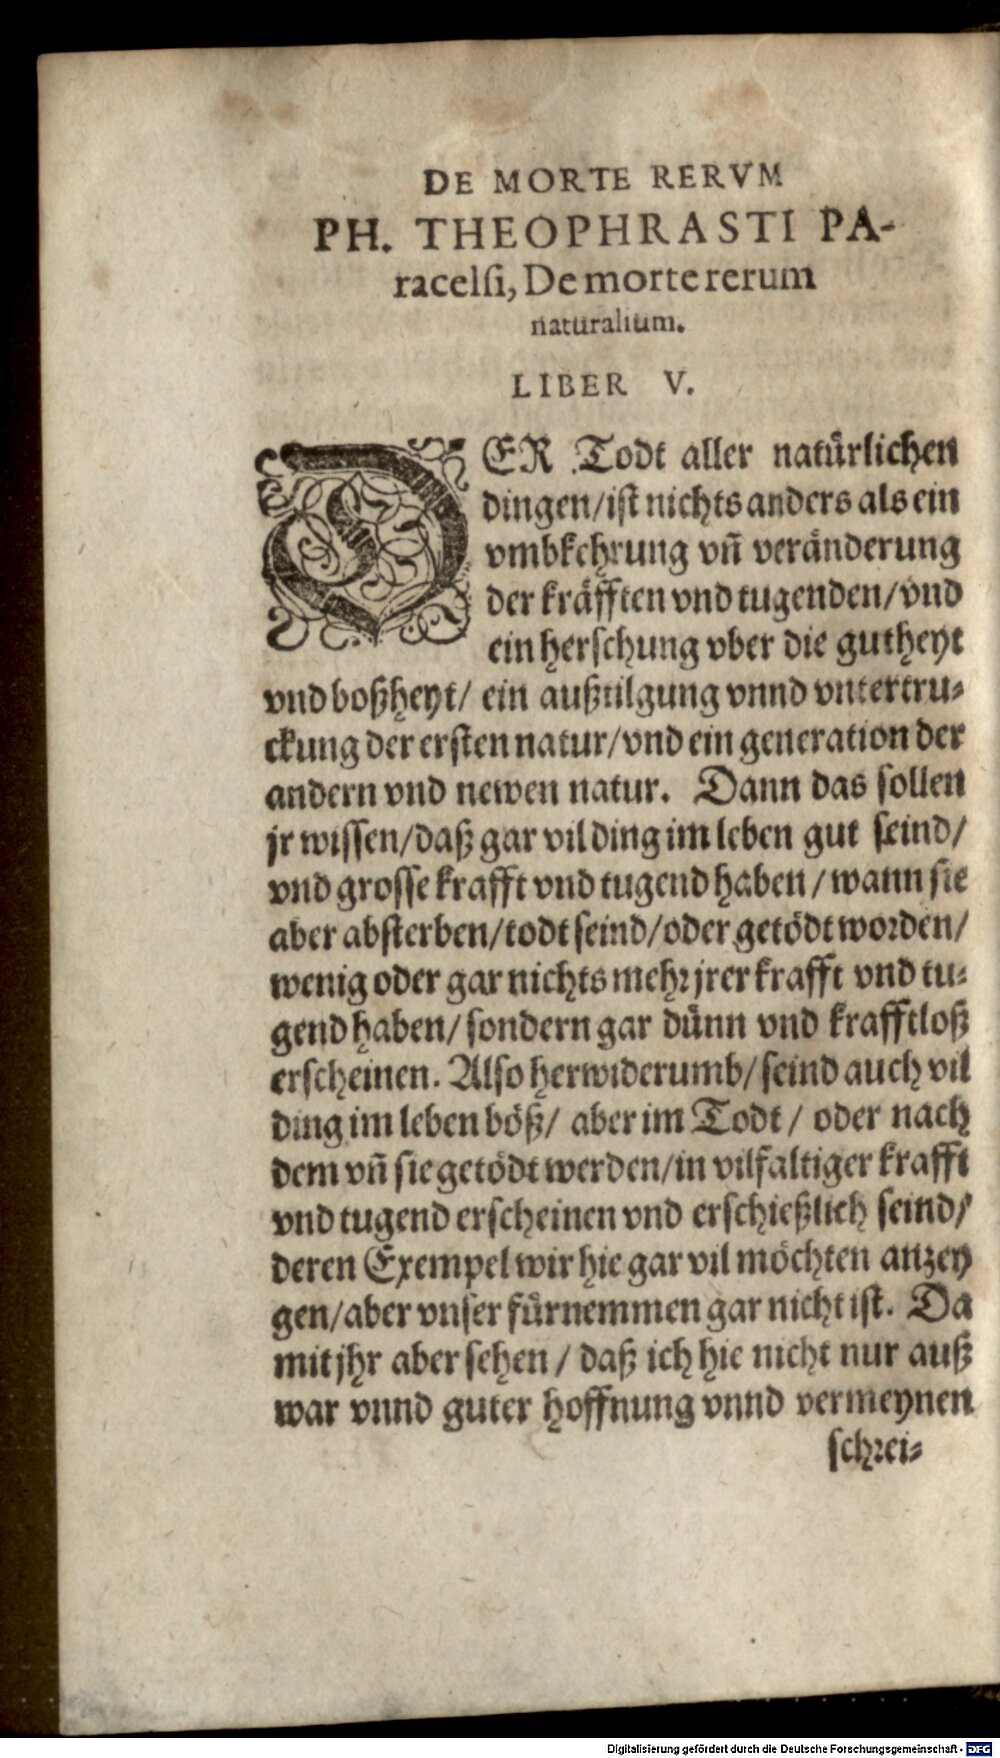 DE MORTE RERVM
PH. THEOPHRASTI PA-
racelſi, De morte rerum
naturalium.
LIBER V.
DER Todt aller natürlichen
dingen/ iſt nichts anders als ein
vmbkehrung vñ veränderung
der kräfften vnd tugenden/ vnd
ein herſchung vber die gutheyt
vnd boßheyt/ ein außtilgung vnnd vntertru⸗
ckung der erſten natur/ vnd ein generation der
andern vnd newen natur. Dann das ſollen
jr wiſſen/ daß gar vil ding im leben gut ſeind/
vnd groſſe krafft vnd tugend haben/ wann ſie
aber abſterben/ todt ſeind/ oder getödt worden/
wenig oder gar nichts mehr jrer krafft vnd tu⸗
gend haben/ ſondern gar dünn vnd krafftloß
erſcheinen. Alſo herwiderumb/ ſeind auch vil
ding im leben böß/ aber im Todt/ oder nach
dem vñ ſie getödt werden/ in vilfaltiger krafft
vnd tugend erſcheinen vnd erſchießlich ſeind/
deren Exempel wir hie gar vil möchten anzey
gen/ aber vnſer fürnemmen gar nicht iſt. Da
mit jhr aber ſehen/ daß ich hie nicht nur auß
war vnnd guter hoffnung vnnd vermeynen
ſchrei⸗
Digitalisierung gefördert durch die Deutsche Forschungsgemeinschaft - DFG